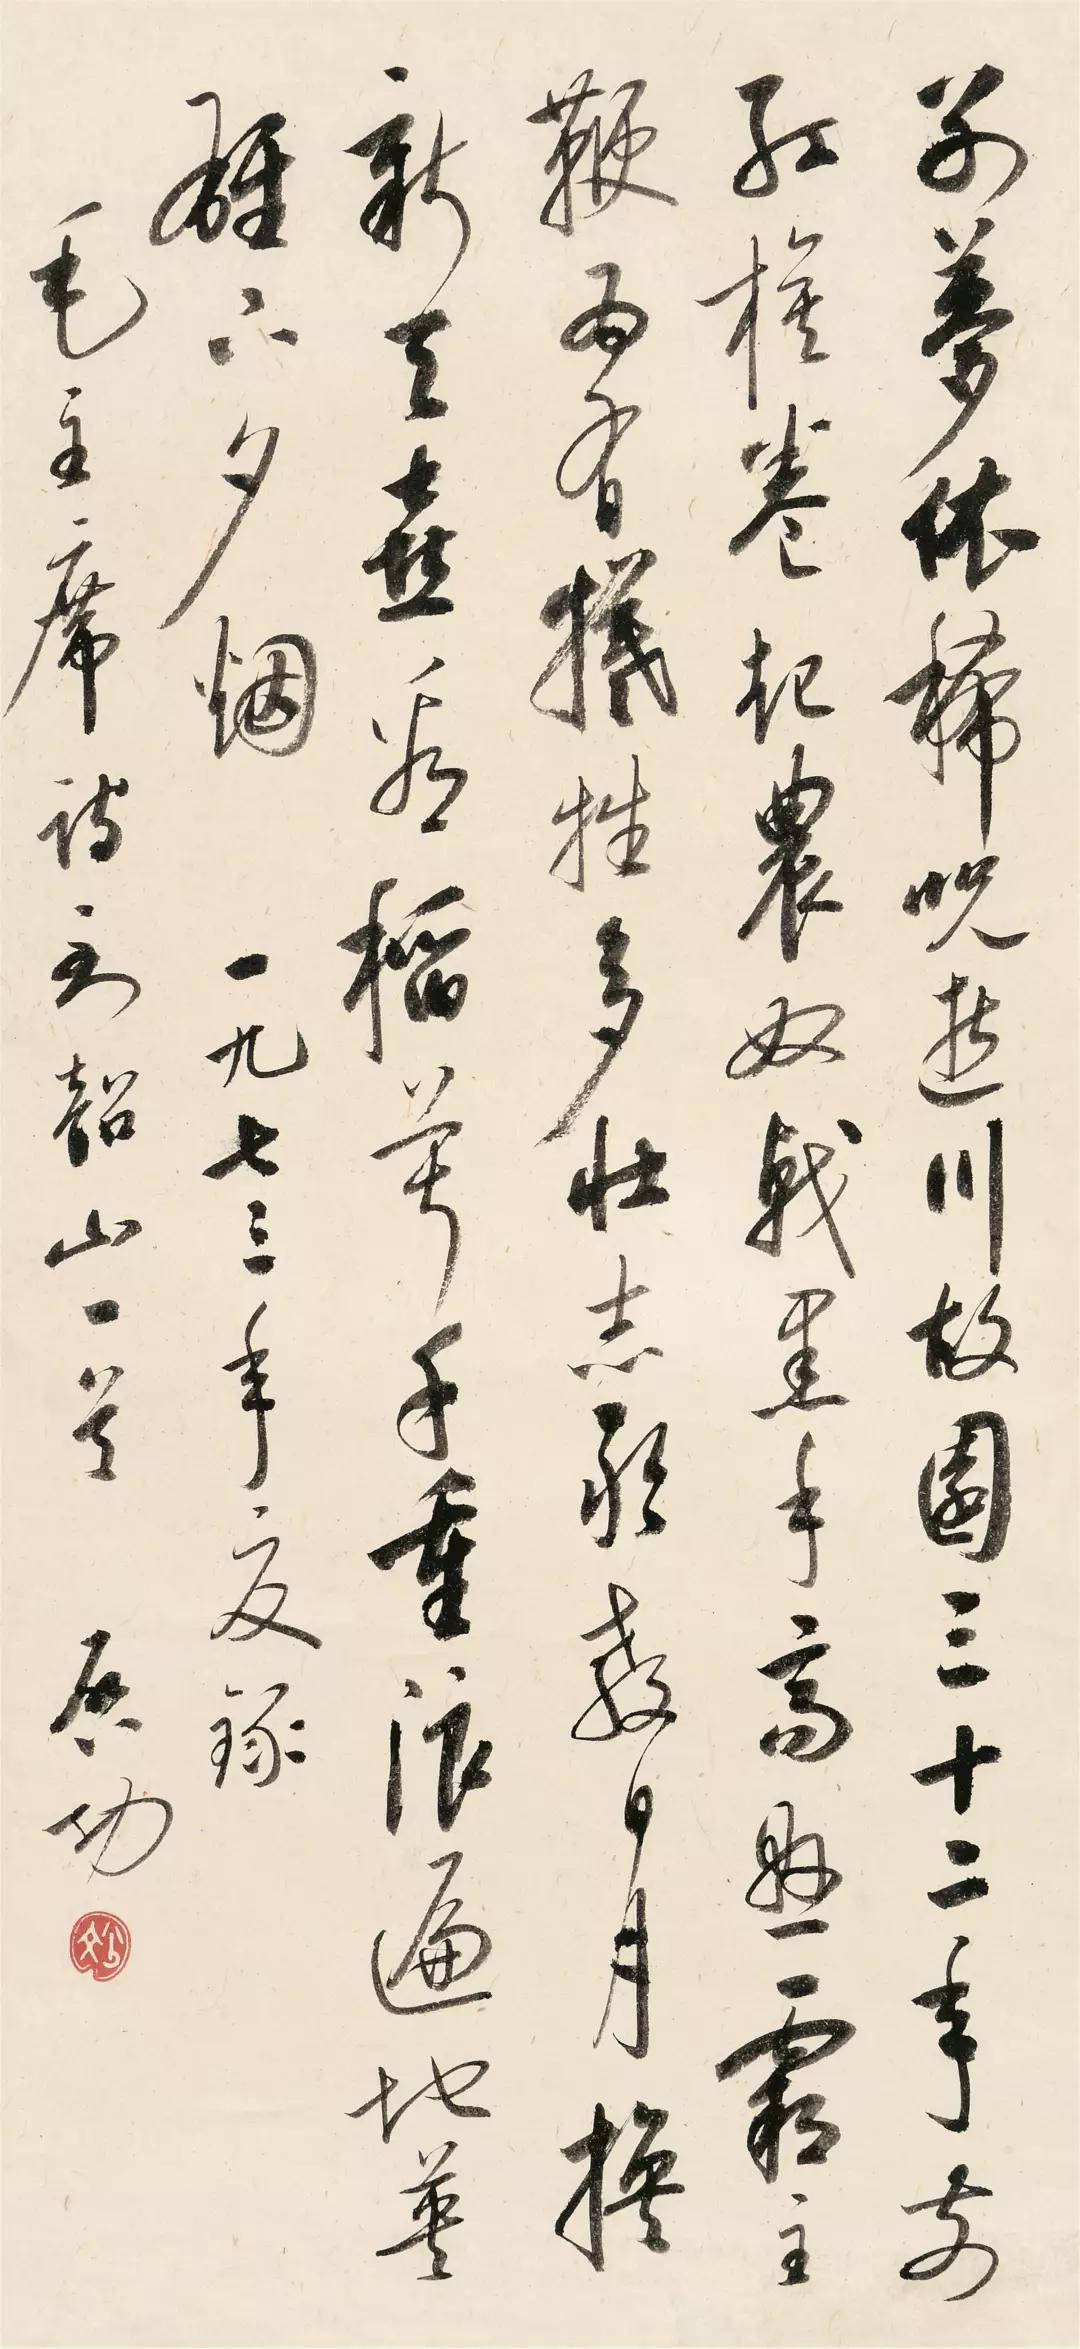 别夢依稀咒逝川故園三十二年前
紅旗卷起農奴戟黑手高懸霸主
鞭為有犧牲多壯志敢教日月換
新天喜看稻菽千重浪遍地英
雄下夕烟 一九七三年夏録
毛主席詩到韶山一首 启功